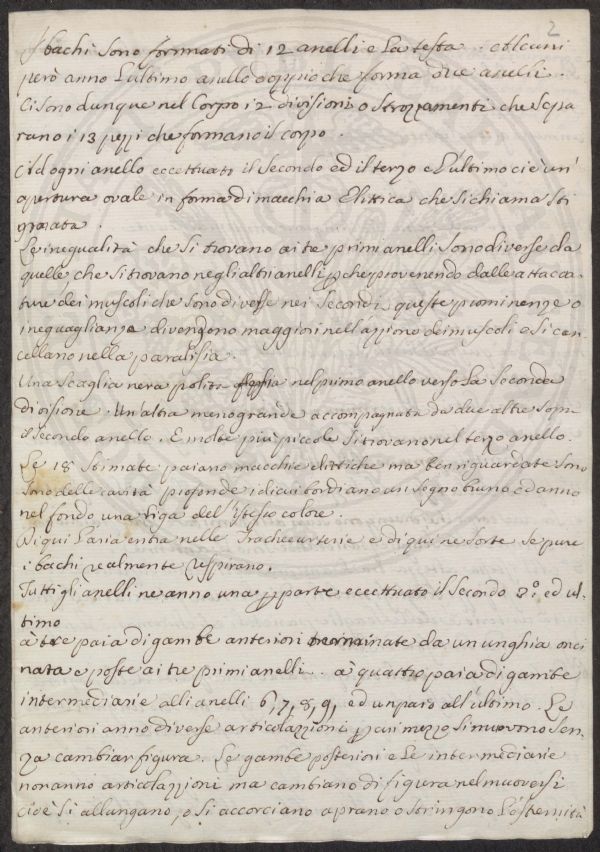 2
I bachi sono formati di 12 anelli e la testa. Alcuni
però anno l'ultimo anello doppio che forma due anelli.
Ci sono dunque nel corpo 12 divisioni o strozzamenti che sepa
rano i 13 pezzi che formano il corpo.
Ad ogni anello eccettuato il secondo ed il terzo e l'ultimo ci è un'
apertura ovale in forma di macchia Elittica che si chiama sti
gmata.
Le inequalità che si trovano ai tre primi anelli sono diverse da
quelle che si trovano negli altri anelli p che provenendo dalle attacca=
ture dei muscoli che sono diverse nei secondi queste prominenze o
ineguaglianze divengono maggiori nell'azzione dei muscoli e si can=
cellano nella paralisia.
Una scaglia nera polita nel primo anello verso la seconda
divisione. Un'altra meno grande accompagnata da due altre sopra
il secondo anello. E molte più piccole si trovano nel terzo anello.
Le 18 stimate paiano macchie elittiche ma ben riguardate sono
sono delle cavità profonde i di cui bordi ano un segno bruno ed anno
nel fondo una riga del istesso colore.
Di qui l'aria entra nelle Tracheearterie e di qui ne sorte se pure
i bachi realmente respirano.
Tutti gli anelli ne anno una p parte eccettuato il secondo 3.° ed ul=
timo
à tre paia di gambe anteriori terminate da un unghia onci
nata e poste ai tre primi anelli. à quattro paia di gambe
intermediarie alli anelli 6, 7, 8, 9, ed un paio all'ultimo. Le
anteriori anno diverse articolazzioni p cui mezzo si muovono sen=
za cambiar figura. Le gambe posteriori e le intermediarie
non anno articolazzioni ma cambiano di figura nel muoversi
cioè si allungano, o si accorciano aprano o stringono l'estremità